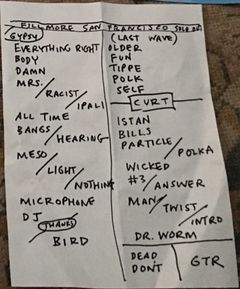 FILLMORE SAN FRANCISCO SOLD OUT
GYPSY
EVERYTHING RIGHT
BODY
DAMN
MRS.
RACIST
IPALI
ALL TIME
BANGS
HEARING
MESO
LIGHT
NOTHING
MICROPHONE
DJ
THANKS
BIRD
(LAST WAVE)
OLDER
FUN
TIPPE
POLK
SELF
CURT
ISTAN
BILLS
PARTICLE
POLKA
WICKED
#3
ANSWER
MAN
TWIST
INTRO
DR. WORM
DEAD
DON'T
GTR